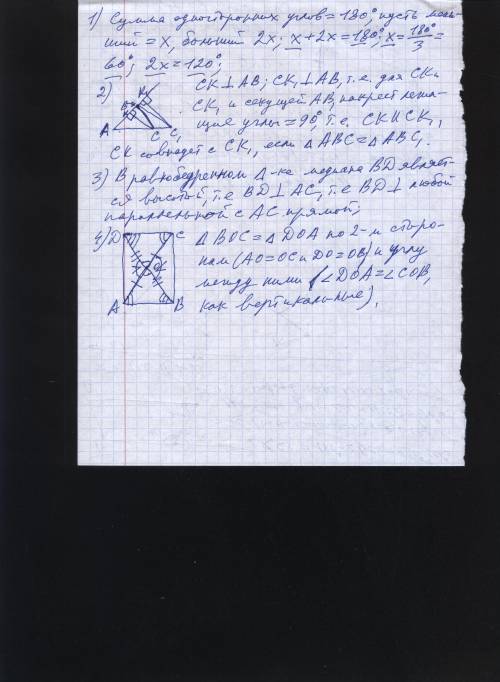 1) Сумма односторонних углов = 180°, пусть мень-
ший = x, больший 2x; x + 2x = 180°; x = 180°/3 =
60°; 2x = 120°;
2) CK ⊥ AB; CK₁ ⊥ AB, т.е. для CK и
CK₁ и секущей AB, накрест лежа-
щие углы = 90°, т.е. CK ∥ CK₁,
CK совпадет с CK₁, если △ABC = △ABC₁.
A C C₁
3) В равнобедренном △-ке медиана BD являет-
ся высотой, т.е BD ⊥ AC, т.е BD ⊥ любой
параллельной с AC прямой;
4) D C △BOC = △DOA по 2-м сторо-
нам (AO = OC и DO = OB) и углу
между ними (∠DOA = ∠COB,
A B как вертикальные).